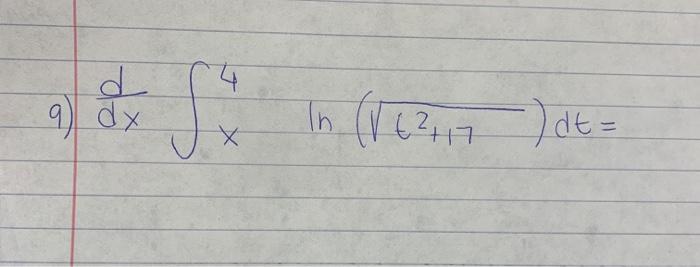 9) d/dx ∫_x^4 ln (√(t²+17)) dt =